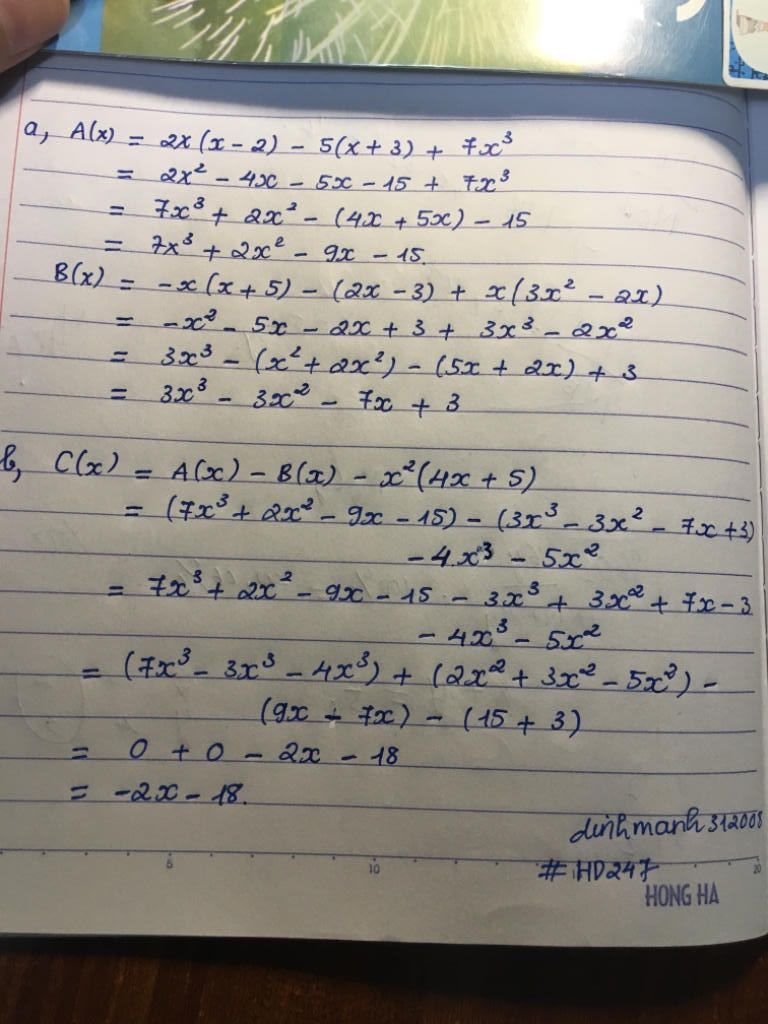 a, A(x) = 2x(x - 2) - 5(x + 3) + 7x³
= 2x² - 4x - 5x - 15 + 7x³
= 7x³ + 2x² - (4x + 5x) - 15
= 7x³ + 2x² - 9x - 15.
B(x) = -x(x + 5) - (2x - 3) + x(3x² - 2x)
= -x² - 5x - 2x + 3 + 3x³ - 2x²
= 3x³ - (x² + 2x²) - (5x + 2x) + 3
= 3x³ - 3x² - 7x + 3
b, C(x) = A(x) - B(x) - x²(4x + 5)
= (7x³ + 2x² - 9x - 15) - (3x³ - 3x² - 7x + 3)
- 4x³ - 5x²
= 7x³ + 2x² - 9x - 15 - 3x³ + 3x² + 7x - 3
- 4x³ - 5x²
= (7x³ - 3x³ - 4x³) + (2x² + 3x² - 5x²) -
(9x - 7x) - (15 + 3)
= 0 + 0 - 2x - 18
= -2x - 18.
dinhmanh312008
# HD247
5 10 20
HONG HA